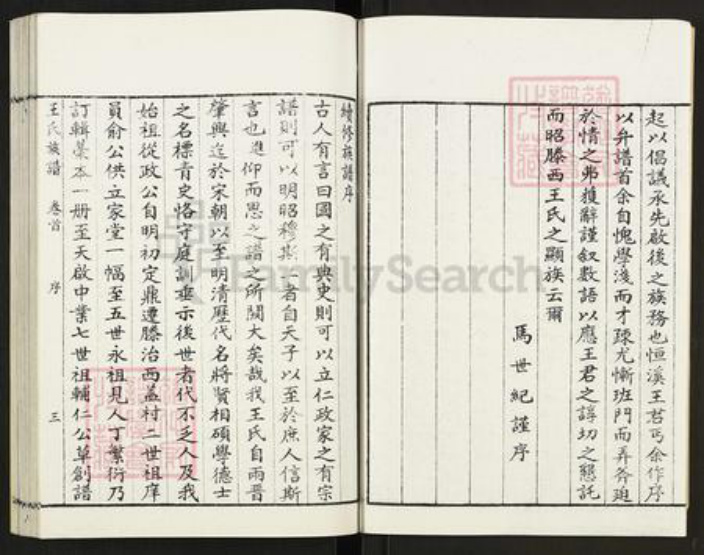 起以倡議承先啟後之族務也恒溪王君丐余作序
以弁譜首余自愧學淺而才疎尤慚班門而弄斧迫
於情之弗獲辭謹叙數語以應王君之諄切之懇託
而昭滕西王氏之顯族云爾
馬世紀謹序
續修族譜序
古人有言曰國之有典史則可以立仁政家之有宗
譜則可以明昭穆斯二者自天子以至於庶人信斯
言也進仰而思之譜之所關大矣哉我王氏自兩晋
肇興迄於宋朝以至明清歷代名將賢相碩學德士
之名標青史恪守庭訓垂示後世者代不乏人及我
始祖從政公自明初定鼎遷滕治西孟村二世祖庠
員俞公供立家堂一幅至五世永祖見人丁繁衍乃
訂輯藁本一册至天啟中業七世祖輔仁公草創譜
王氏族譜 卷首 序 三
FamilySearch